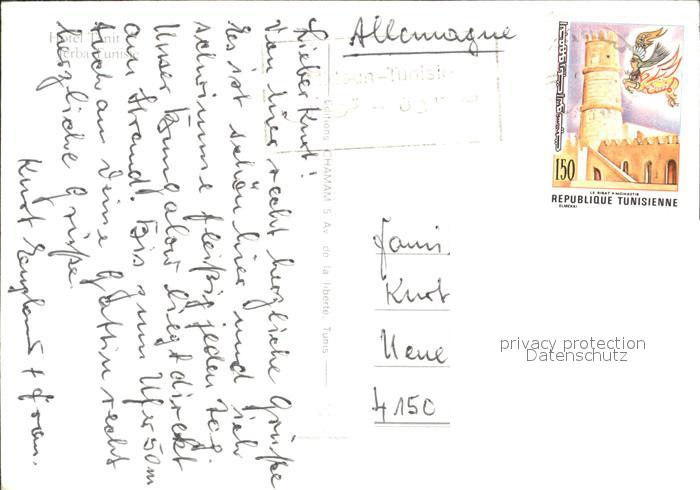 Hotel Tanit
Djerba Tunisie
Allemagne
Lieber Kurt!
Von hier recht herzliche Grüße
Es ist schön hier und ich
schwimme fleißig jeden Tag.
Unser Bungalow liegt direkt
am Strand. Bis zum Ufer 50m
Auch an Deine Gattin recht
herzliche Grüße.
Kurt + Frau.
Editions CHAMAM 5 Av. de la liberte. Tunis
-Tunisie
150
LE RIBAT MONASTIR
REPUBLIQUE TUNISIENNE
ELMEKKI
Fami
Kurt
Neue
4150
privacy protection
Datenschutz